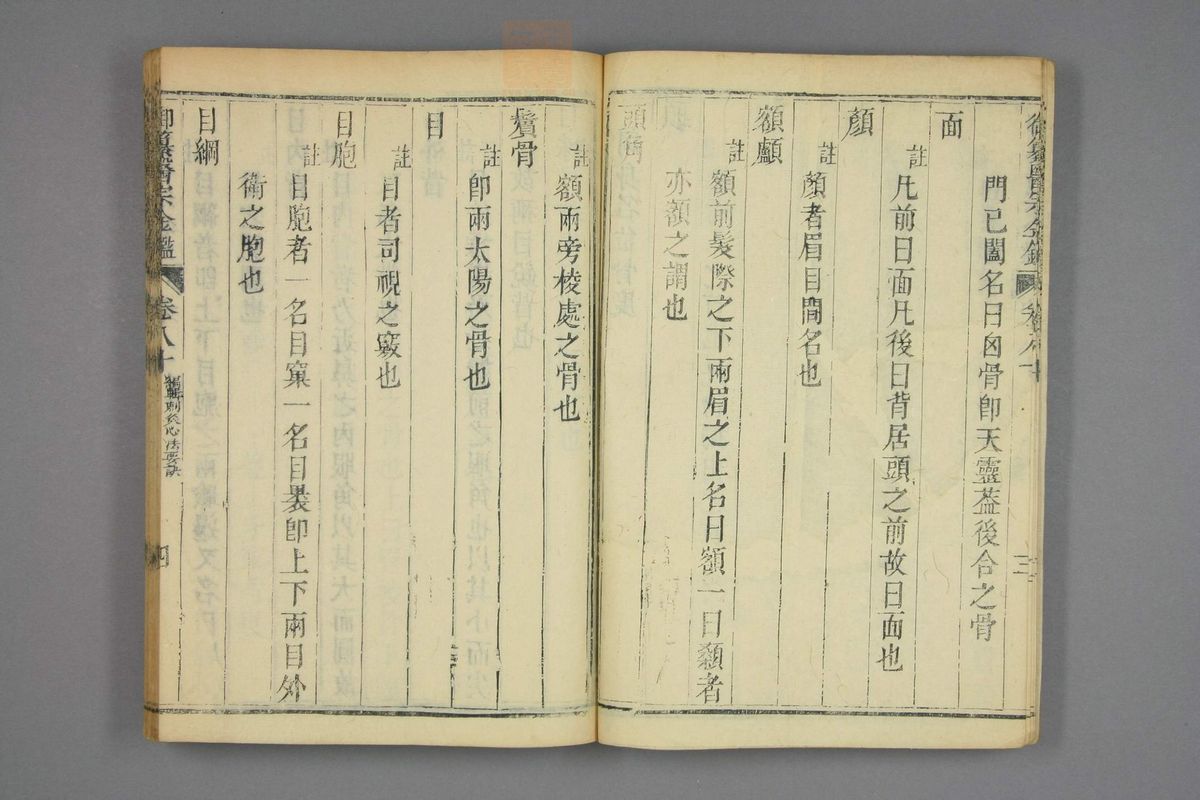 門已闔名曰囟骨卽天靈葢後合之骨
面
註凡前曰面凡後曰背居頭之前故曰面也
顏
註顏者眉目間名也
額顱
註額前髮際之下兩眉之上名曰額一曰顙者
亦額之謂也
頭角
註額兩旁棱處之骨也
鬢骨
註卽兩太陽之骨也
目
註目者司視之竅也
目胞
註目胞者一名目窠一名目裹卽上下兩目外
衛之胞也
目綱
御纂醫宗金鑑 卷八十 編輯刺灸心法要訣 四